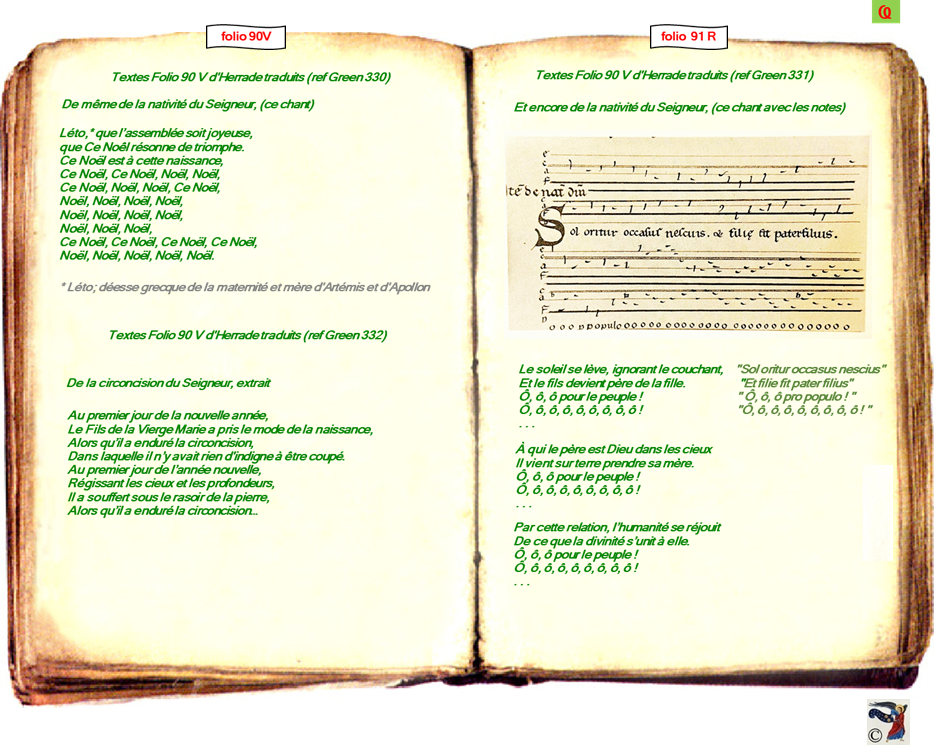 folio 90V
Textes Folio 90 V d'Herrade traduits (ref Green 330)
De même de la nativité du Seigneur, (ce chant)
Léto,* que l'assemblée soit joyeuse,
que Ce Noêl résonne de triomphe.
Ce Noël est à cette naissance,
Ce Noël, Ce Noël, Noël, Noël,
Ce Noël, Noël, Noël, Ce Noël,
Noël, Noël, Noël, Noël,
Noël, Noël, Noël, Noël,
Noël, Noël, Noël,
Ce Noël, Ce Noël, Ce Noël, Ce Noël,
Noël, Noël, Noël, Noël, Noël.
* Léto; déesse grecque de la maternité et mère d'Artémis et d'Apollon
Textes Folio 90 V d'Herrade traduits (ref Green 332)
De la circoncision du Seigneur, extrait
Au premier jour de la nouvelle année,
Le Fils de la Vierge Marie a pris le mode de la naissance,
Alors qu'il a enduré la circoncision,
Dans laquelle il n'y avait rien d'indigne à être coupé.
Au premier jour de l'année nouvelle,
Régissant les cieux et les profondeurs,
Il a souffert sous le rasoir de la pierre,
Alors qu'il a enduré la circoncision...
folio 91 R
Textes Folio 90 V d'Herrade traduits (ref Green 331)
Et encore de la nativité du Seigneur, (ce chant avec les notes)
itē de nat dm̄
Sol oritur occasus nescius. & filię fit pater filius.
o o o p populo o o o o o o o o o o o o o o o o o o o
Le soleil se lève, ignorant le couchant, "Sol oritur occasus nescius"
Et le fils devient père de la fille. "Et filie fit pater filius"
Ô, ô, ô pour le peuple ! " Ô, ô, ô pro populo ! "
Ô, ô, ô, ô, ô, ô, ô, ô, ô ! "Ô, ô, ô, ô, ô, ô, ô, ô, ô ! "
. . .
À qui le père est Dieu dans les cieux
Il vient sur terre prendre sa mère.
Ô, ô, ô pour le peuple !
Ô, ô, ô, ô, ô, ô, ô, ô, ô !
. . .
Par cette relation, l'humanité se réjouit
De ce que la divinité s'unit à elle.
Ô, ô, ô pour le peuple !
Ô, ô, ô, ô, ô, ô, ô, ô, ô !
. . .
©